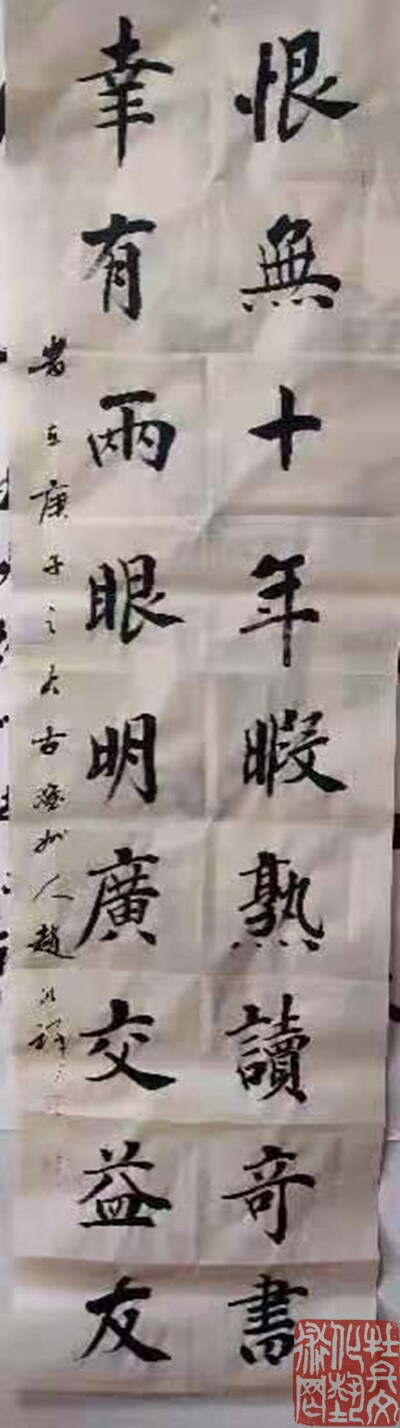 恨無十年暇熟讀奇書
幸有兩眼明廣交益友
庚子之
古
人趙